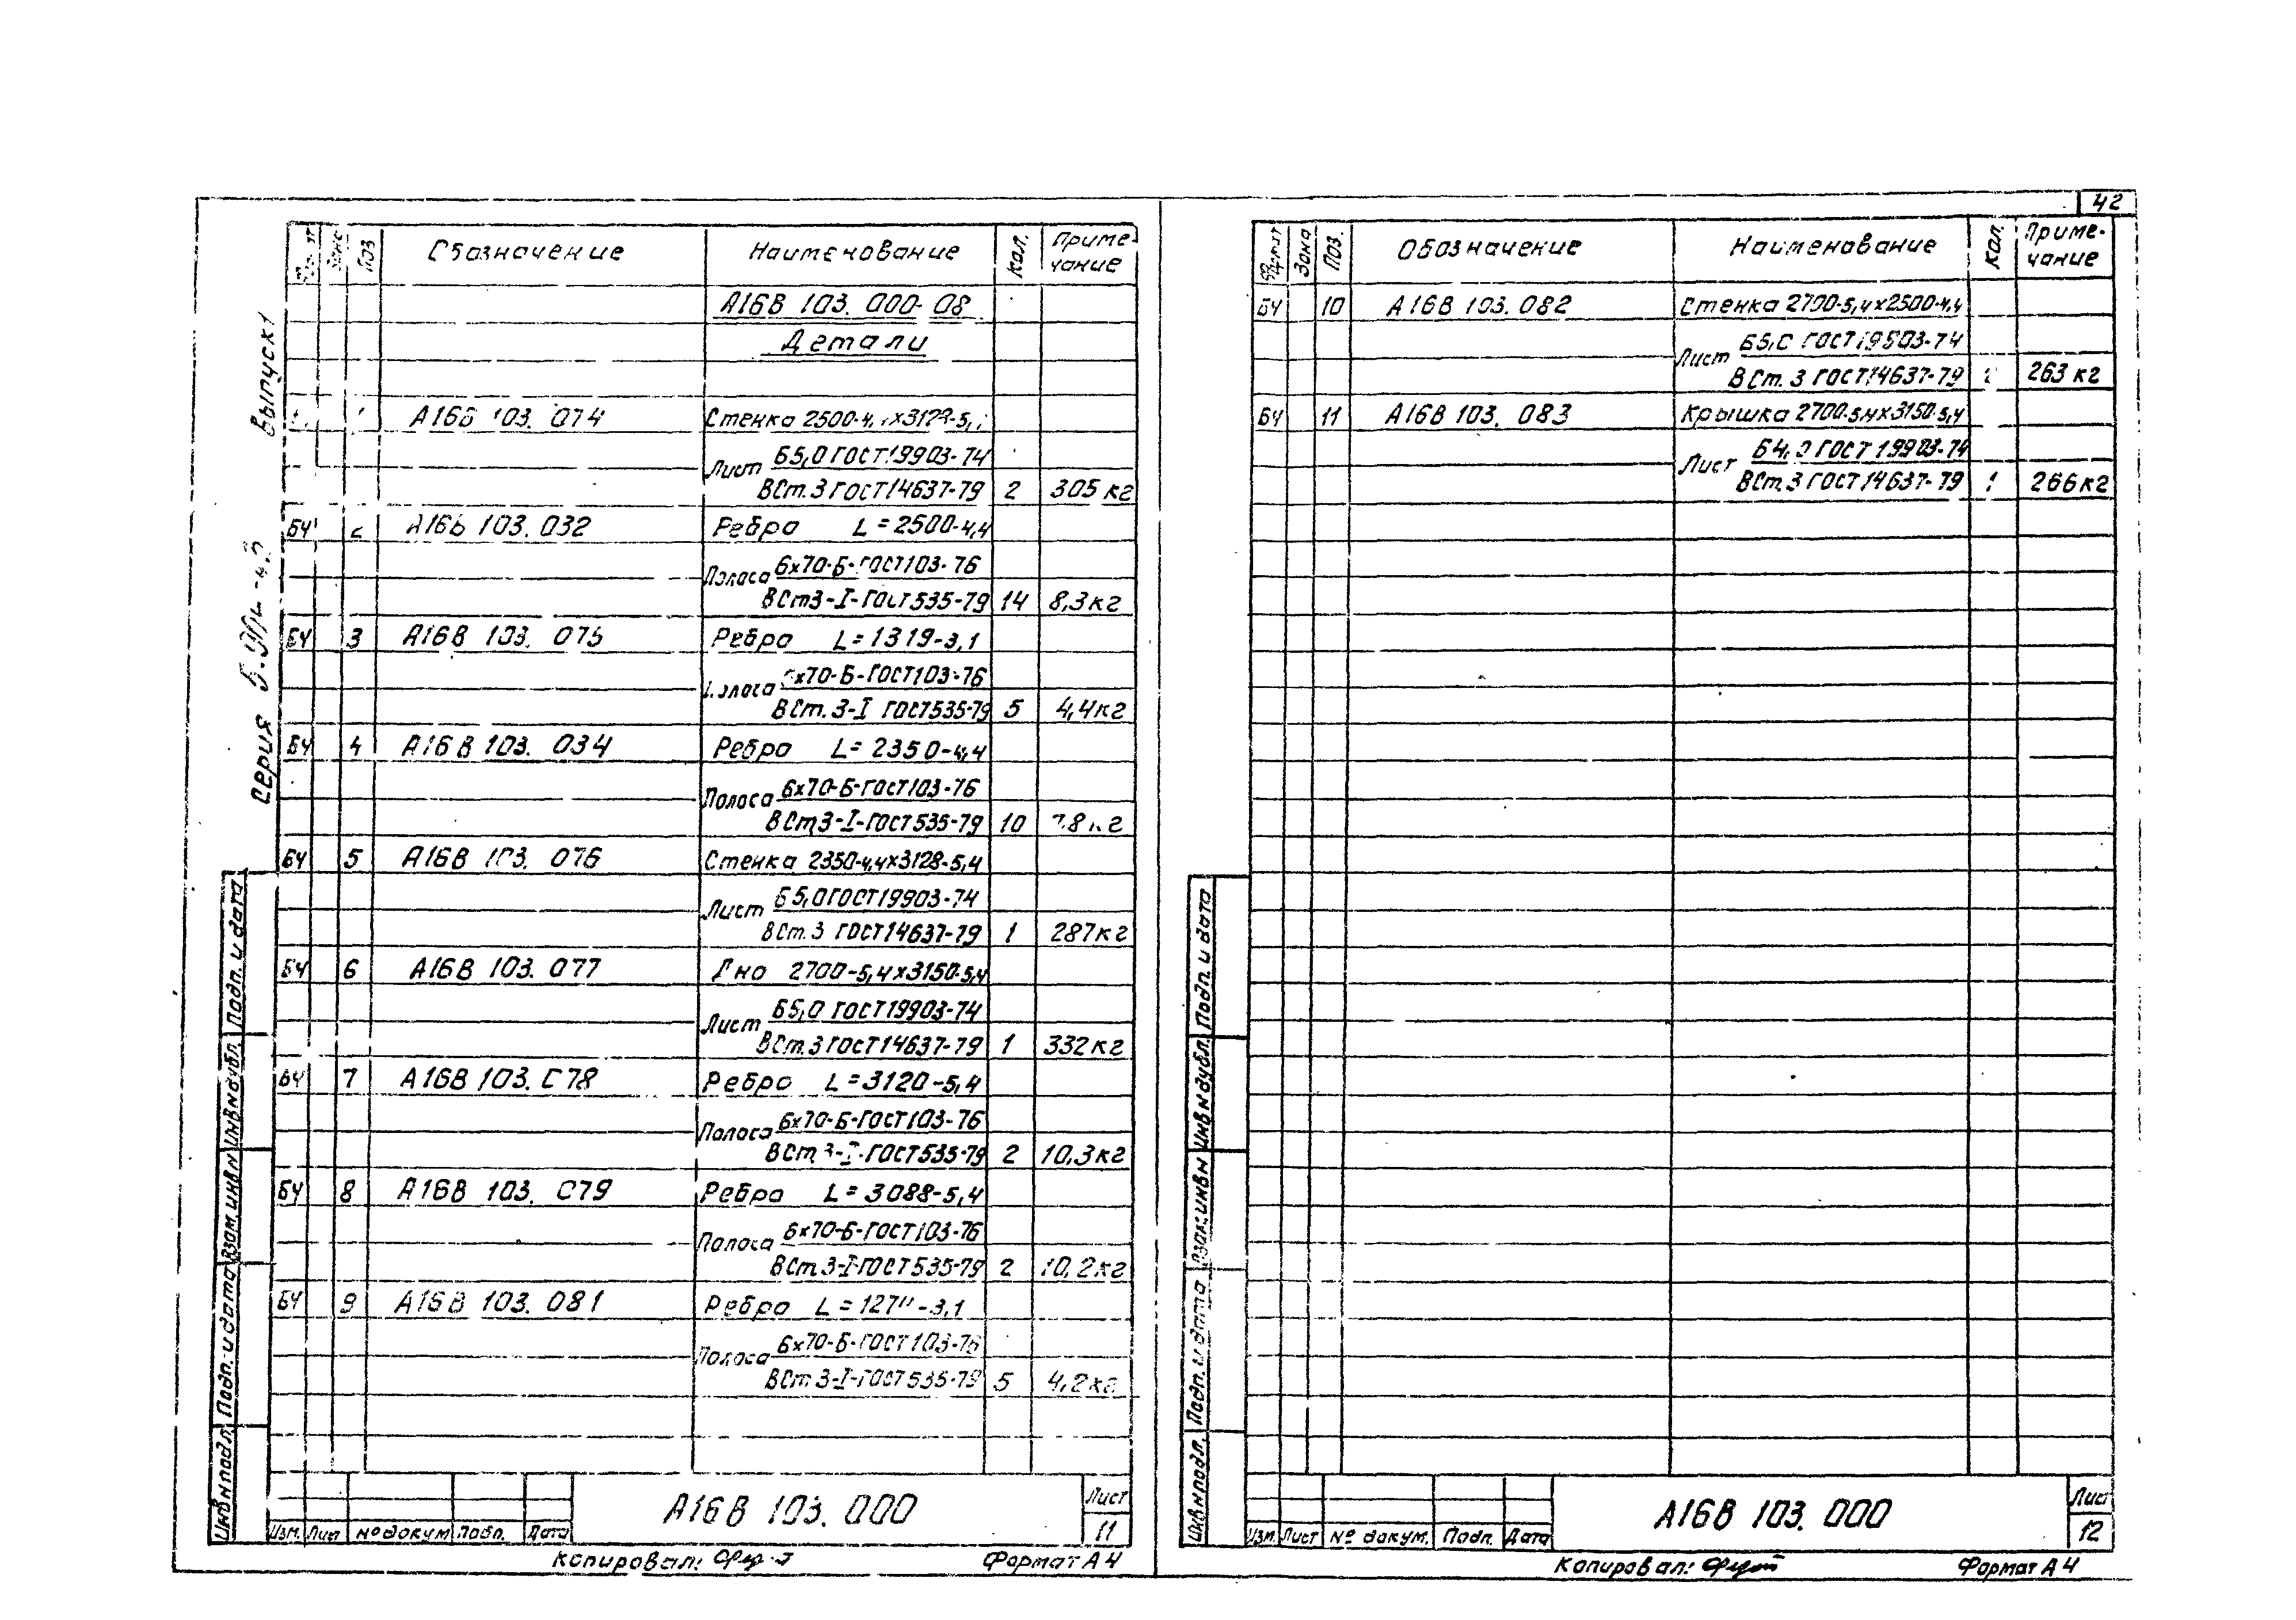 42
Серия
Выпуск 1
Обозначение Наименование Кол. Приме-
чание
А16В 103.000-08
Детали
А16В 103.074 Стенка
Лист Б5,0 ГОСТ 19903-74
ВСт.3 ГОСТ 14637-79 2 305 кг
БЧ 2 А16В 103.032 Ребро L=2500-4,4
Полоса 6х70-Б-ГОСТ 103-76
ВСт3-I-ГОСТ 535-79 14 8,3 кг
БЧ 3 А16В 103.075 Ребро L=1319-3,1
Полоса 6х70-Б-ГОСТ 103-76
ВСт.3-I ГОСТ 535-79 5 4,4 кг
БЧ 4 А16В 103.034 Ребро L=2350-4,4
Полоса 6х70-Б-ГОСТ 103-76
ВСт3-I-ГОСТ 535-79 10 7,8 кг
БЧ 5 А16В 103.076 Стенка 2350-4,4х3128-5,4
Лист Б5,0 ГОСТ 19903-74
ВСт.3 ГОСТ 14637-79 1 287 кг
БЧ 6 А16В 103.077 Дно 2700-5,4х3150-5,4
Лист Б5,0 ГОСТ 19903-74
ВСт.3 ГОСТ 14637-79 1 332 кг
БЧ 7 А16В 103.078 Ребро L=3120-5,4
Полоса 6х70-Б-ГОСТ 103-76
ВСт3-I-ГОСТ 535-79 2 10,3 кг
БЧ 8 А16В 103.079 Ребро L=3088-5,4
Полоса 6х70-Б-ГОСТ 103-76
ВСт3-I-ГОСТ 535-79 2 10,2 кг
БЧ 9 А16В 103.081 Ребро
Полоса 6х70-Б-ГОСТ 103-76
ВСт3-I-ГОСТ 535-79 5 4,2 кг
Инв№подл. Подп. и дата Взам.инв№ Инв№дубл. Подп. и дата
Изм. Лист № докум. Подп. Дата
А16В 103.000
Лист
11
Копировал:
Формат А4
Формат Зона Поз. Обозначение Наименование Кол. Приме-
чание
БЧ 10 А16В 103.082 Стенка 2700-5,4х2500-4,4
Лист Б5,0 ГОСТ 19903-74
ВСт.3 ГОСТ 14637-79 263 кг
БЧ 11 А16В 103.083 Крышка 2700-5,4х3150-5,4
Лист Б4,0 ГОСТ 19903-74
ВСт.3 ГОСТ 14637-79 1 266 кг
Инв№подл. Подп. и дата Взам.инв№ Инв№дубл. Подп. и дата
Изм. Лист № докум. Подп. Дата
А16В 103.000
Лист
12
Копировал:
Формат А4